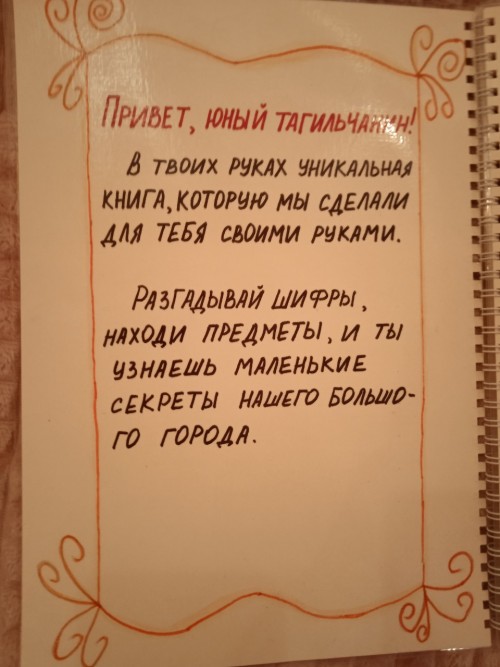 Привет, юный тагильчанин!
В твоих руках уникальная
книга, которую мы сделали
для тебя своими руками.
Разгадывай шифры,
находи предметы, и ты
узнаешь маленькие
секреты нашего большо-
го города.